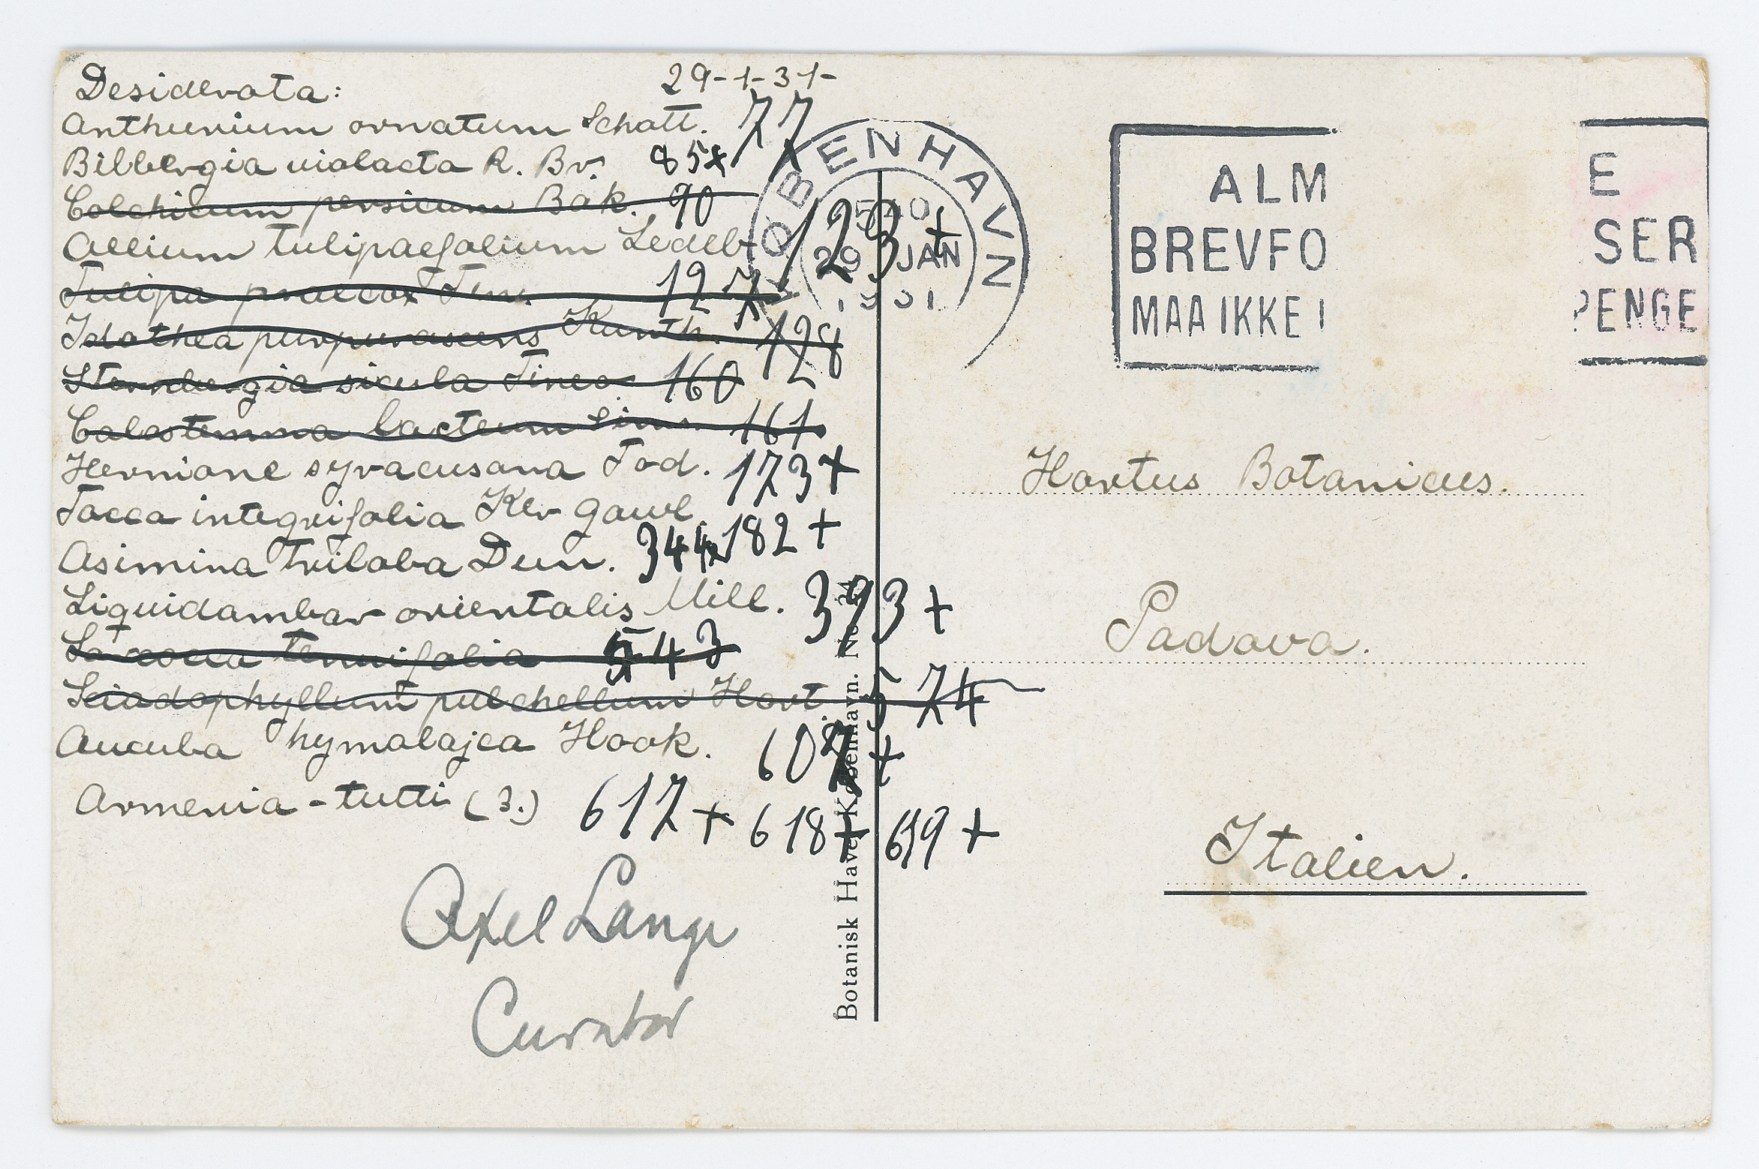 Desiderata:
29-1-31-
Anthurium ornatum Schott. 77
Bilbergia violacea R. Br. 85+
Colchicum persicum Bak. 90
Allium tulipaefolium Ledeb. 123+
Tulipa praecox Ten. 127
Idothea purpurascens Kunth. 128
Sternbergia sicula Tineo 160
Calostemma lacteum Sims. 161
Hermione syracusana Tod. 173+
Tacca integrifolia Ker Gawl 182 +
Asimina triloba Dun. 344
Liquidambar orientalis Mill. 393 +
tenuifolia 543
Sciadophyllum pulchellum Hort. 574
Aucuba hymalajca Hook. 607 +
Armeria - tutti (3.) 617 + 618+ 619 +
Axel Lange
Curator
Botanisk Have, København. No.
KØBENHAVN
29 JAN
1931
ALM E
BREVFO SER
MAA IKKE I PENGE
Hortus Botanicus.
Padova.
Italien.